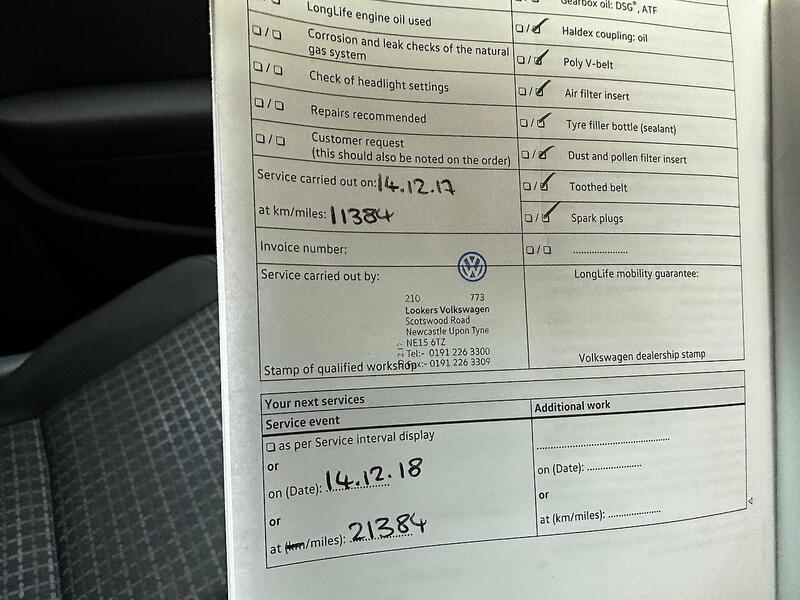 LongLife engine oil used
Corrosion and leak checks of the natural
gas system
Check of headlight settings
Repairs recommended
Customer request
(this should also be noted on the order)
Service carried out on: 14.12.17
at km/miles: 11384
Invoice number:
Service carried out by:
210 773
Lookers Volkswagen
Scotswood Road
Newcastle Upon Tyne
NE15 6TZ
Tel:- 0191 226 3300
Fax:- 0191 226 3309
Stamp of qualified workshop
Gearbox oil: DSG®, ATF
Haldex coupling: oil
Poly V-belt
Air filter insert
Tyre filler bottle (sealant)
Dust and pollen filter insert
Toothed belt
Spark plugs
LongLife mobility guarantee:
Volkswagen dealership stamp
Your next services
Service event
as per Service interval display
or
on (Date): 14.12.18
or
at (km/miles): 21384
Additional work
on (Date):
or
at (km/miles):